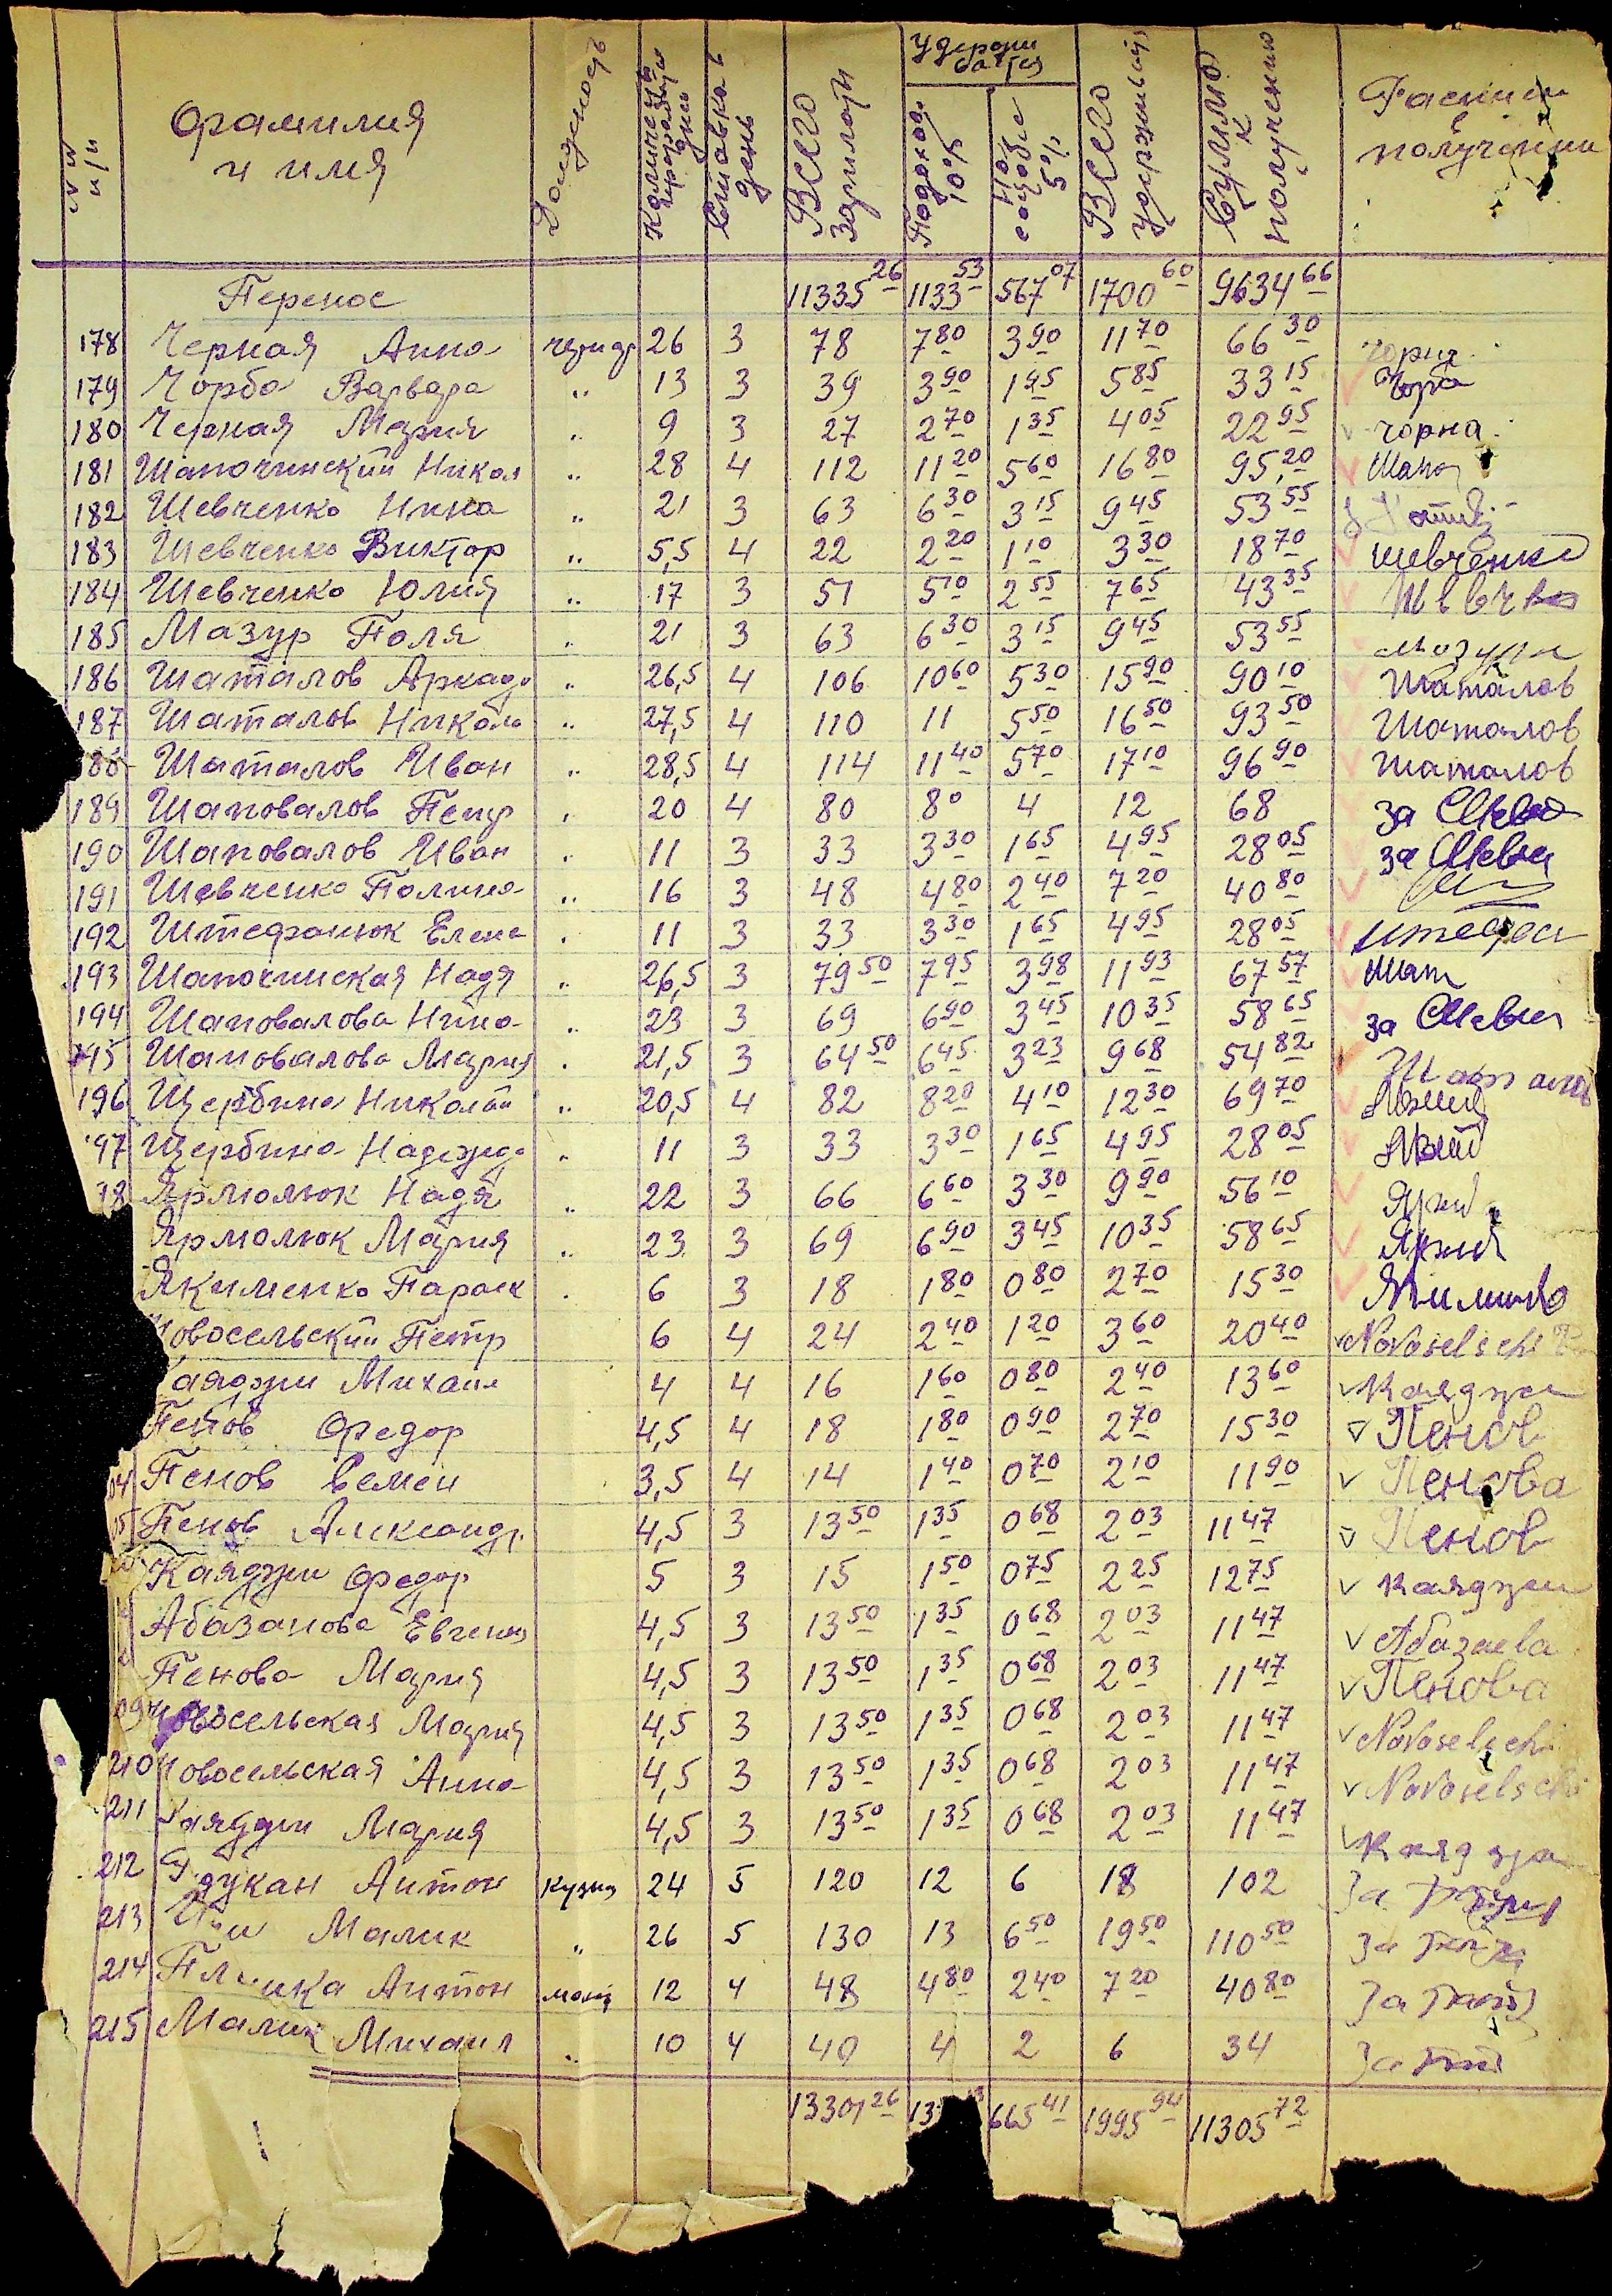 №№ п/п Фамилия и имя Должность Количество прораб. дней Ставка в день Всего зарплаты Удерживается Подоход 10% На особые 5% Всего удержаний Сумма к получению Расписка получении
Перенос 11335 26 1133 53 567 07 1700 60 9634 66
178 Черная Анна 26 3 78 7 80 3 90 11 70 66 30 Чорня
179 Чорба Варвара „ 13 3 39 3 90 1 95 5 85 33 15 Чорба
180 Черная Мария „ 9 3 27 2 70 1 35 4 05 22 95 чорна
181 Шапочинский Никол „ 28 4 112 11 20 5 60 16 80 95,20 Шапо
182 Шевченко Нина „ 21 3 63 6 30 3 15 9 45 53 55
183 Шевченко Виктор „ 5,5 4 22 2 20 1 10 3 30 18 70 шевченко
184 Шевченко Юлия „ 17 3 51 5 10 2 55 7 65 43 35
185 Мазур Поля „ 21 3 63 6 30 3 15 9 45 53 55 мозури
186 Шаталов Аркади „ 26,5 4 106 10 60 5 30 15 90 90 10 Шаталов
187 Шаталов Николa „ 27,5 4 110 11 5 50 16 50 93 50 Шаталов
188 Шаталов Иван „ 28,5 4 114 11 40 5 70 17 10 96 90 Шаталов
189 Шаповалов Петр „ 20 4 80 8 0 4 12 68 за
190 Шаповалов Иван „ 11 3 33 3 30 1 65 4 95 28 05 за
191 Шевченко Полина „ 16 3 48 4 80 2 40 7 20 40 80
192 Штефанюк Елена „ 11 3 33 3 30 1 65 4 95 28 05 штефан
193 Шапочинская Надя „ 26,5 3 79 50 7 95 3 98 11 93 67 57 Шап
194 Шаповалова Нина „ 23 3 69 6 90 3 45 10 35 58 65 за
195 Шаповалова Мария „ 21,5 3 64 50 6 45 3 23 9 68 54 82
196 Щербина Николай „ 20,5 4 82 8 20 4 10 12 30 69 70
97 Щербина Надежда „ 11 3 33 3 30 1 65 4 95 28 05
98 Ярмолюк Надя „ 22 3 66 6 60 3 30 9 90 56 10
Ярмолюк Мария „ 23 3 69 6 90 3 45 10 35 58 65
Якименко Параск „ 6 3 18 1 80 0 80 2 70 15 30
Новосельский Петр 6 4 24 2 40 1 20 3 60 20 40 Novoselschi
аяджи Михаил 4 4 16 1 60 0 80 2 40 13 60 Каяджи
Пенов Федор 4,5 4 18 1 80 0 90 2 70 15 30 Пенов
04 Пенов Семен 3,5 4 14 1 40 0 70 2 10 11 90 Пенова
05 Пенов Александр. 4,5 3 13 50 1 35 0 68 2 03 11 47 Пенов
Каяджи Федор 5 3 15 1 50 0 75 2 25 12 75 Каяджи
Абазанова Евгения 4,5 3 13 50 1 35 0 68 2 03 11 47 Абазаева
Пенова Мария 4,5 3 13 50 1 35 0 68 2 03 11 47 Пенова
09 Новосельская Мария 4,5 3 13 50 1 35 0 68 2 03 11 47 Novoselschi
210 Новосельская Анна 4,5 3 13 50 1 35 0 68 2 03 11 47 Novoselschi
211 Каяджи Мария 4,5 3 13 50 1 35 0 68 2 03 11 47 Каяджи
212 дукан Антон кузнец 24 5 120 12 6 18 102 За
213 Малик „ 26 5 130 13 6 50 19 50 110 50 За
214 Антон 12 4 48 4 80 2 40 7 20 40 80 За
215 Малик Михаил „ 10 4 40 4 2 6 34 За
13301 26 13 665 41 1995 94 11305 72